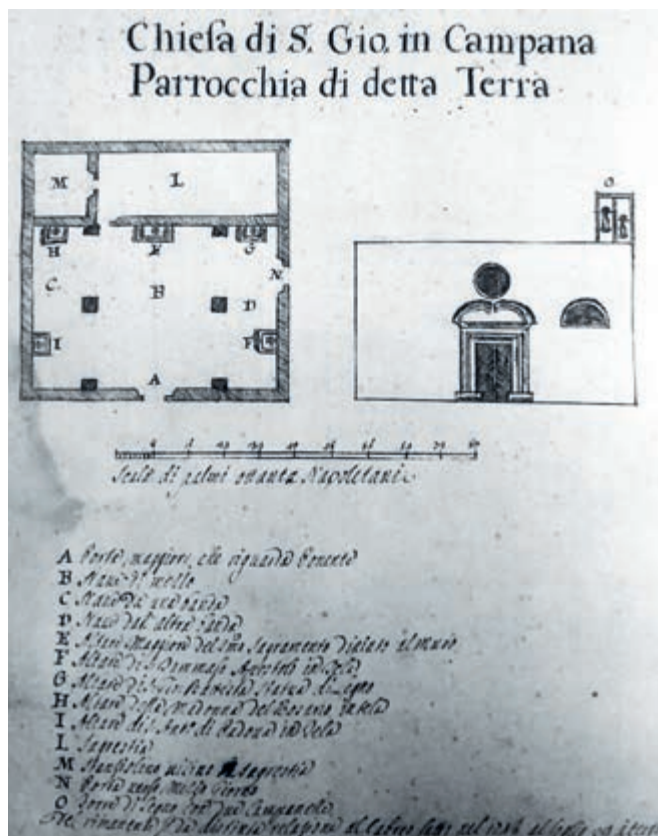 Chieſa di S. Gio. in Campana
Parrocchia di detta Terra
M
L
O
H
E
G
C
B
N
D
I
F
A
Scala di palmi ottanta Napoletani
A Porta maggiore, che riguarda Ponente
B Nave di mezzo
C Nave da una banda
D Nave dall'altra banda
E Altare Maggiore del SSmo Sagramento al muro
F Altare di S. Tommaso Apostolo in tela
G Altare di S. Gio: Battista Statua di legno
H Altare della Madonna del Rosario in tela
I Altare di S. Anto. di Padova in tela
L Sagrestia
M Stanziolino vicino Sagrestia
N Porta verso Mezzo Giorno
O Torre di legno con due Campanelle